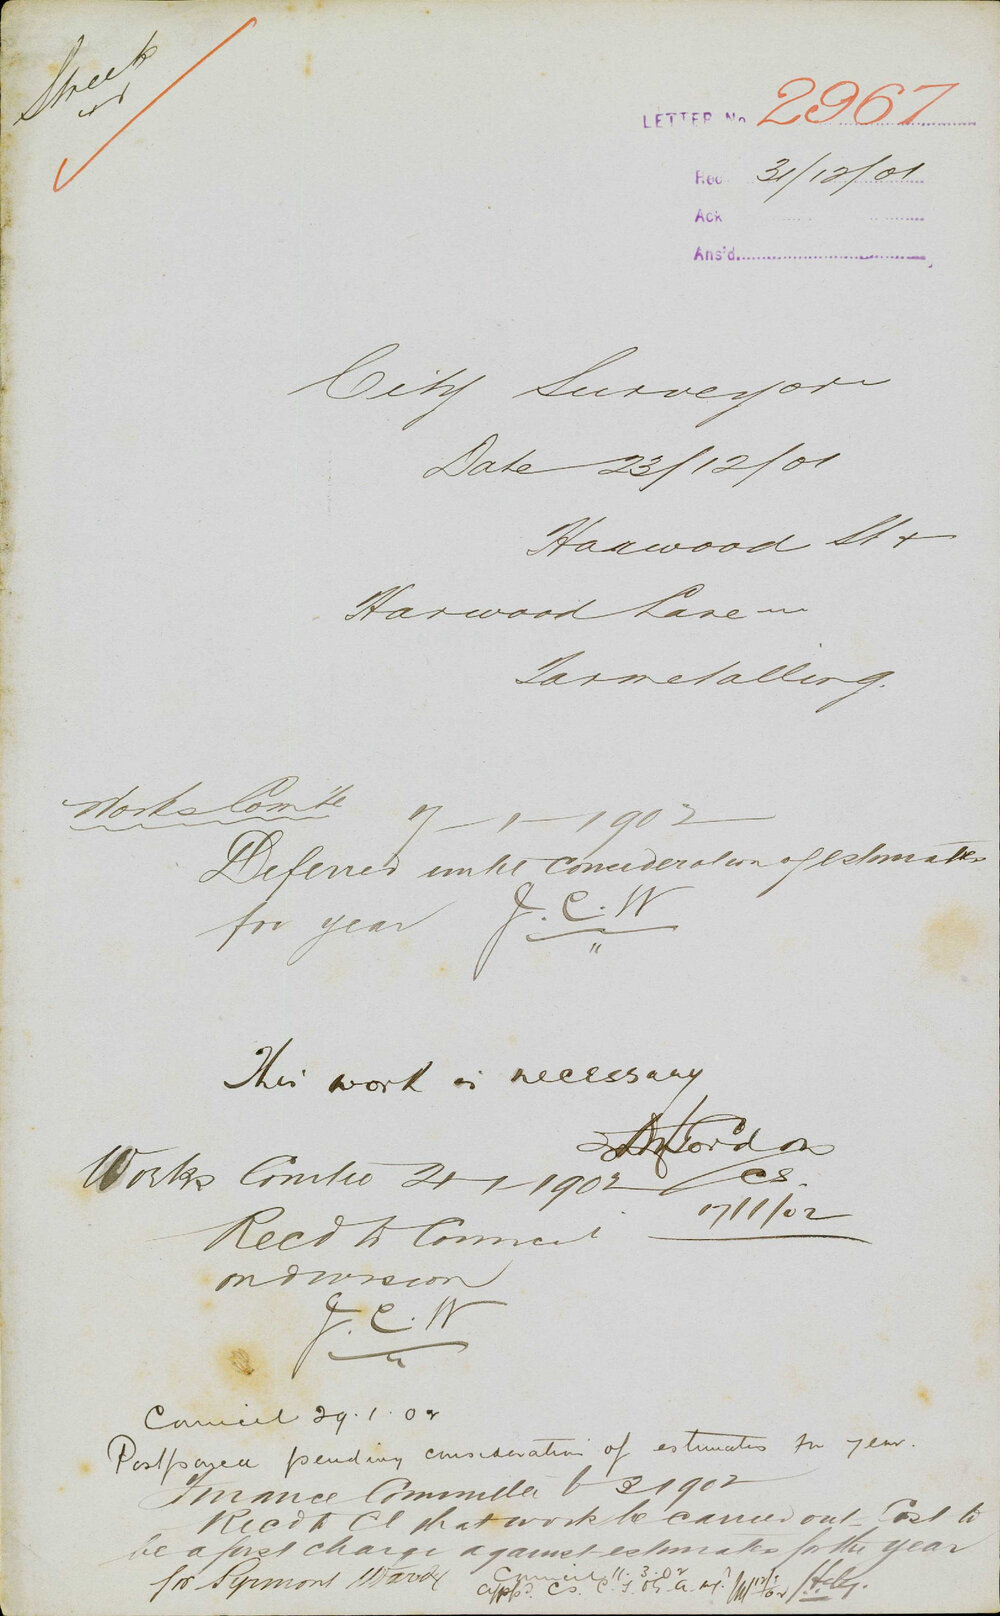 Street
LETTER No 2967
Rec. 31/12/01
Ack
Ans'd.
City Surveyor
Date 23/12/01
Harwood St &
Harwood Lane
Tarmetalling.
Works Comtte 7-1-1902
Deferred until consideration of estimates
for year J.C.W
This work is necessary
Gordon
CS.
17/1/02
Works Comtee 24-1-1902
Recd to Council
on division
J.C.W
Council 29.1.02
Postponed pending consideration of estimates for year.
Finance Committee 6 3 1902
Recd to Cl that work be carried out Cost to
be a first charge against estimates for the year
for Pyrmont Ward
Council 11.3.02
app'd. CS. C.